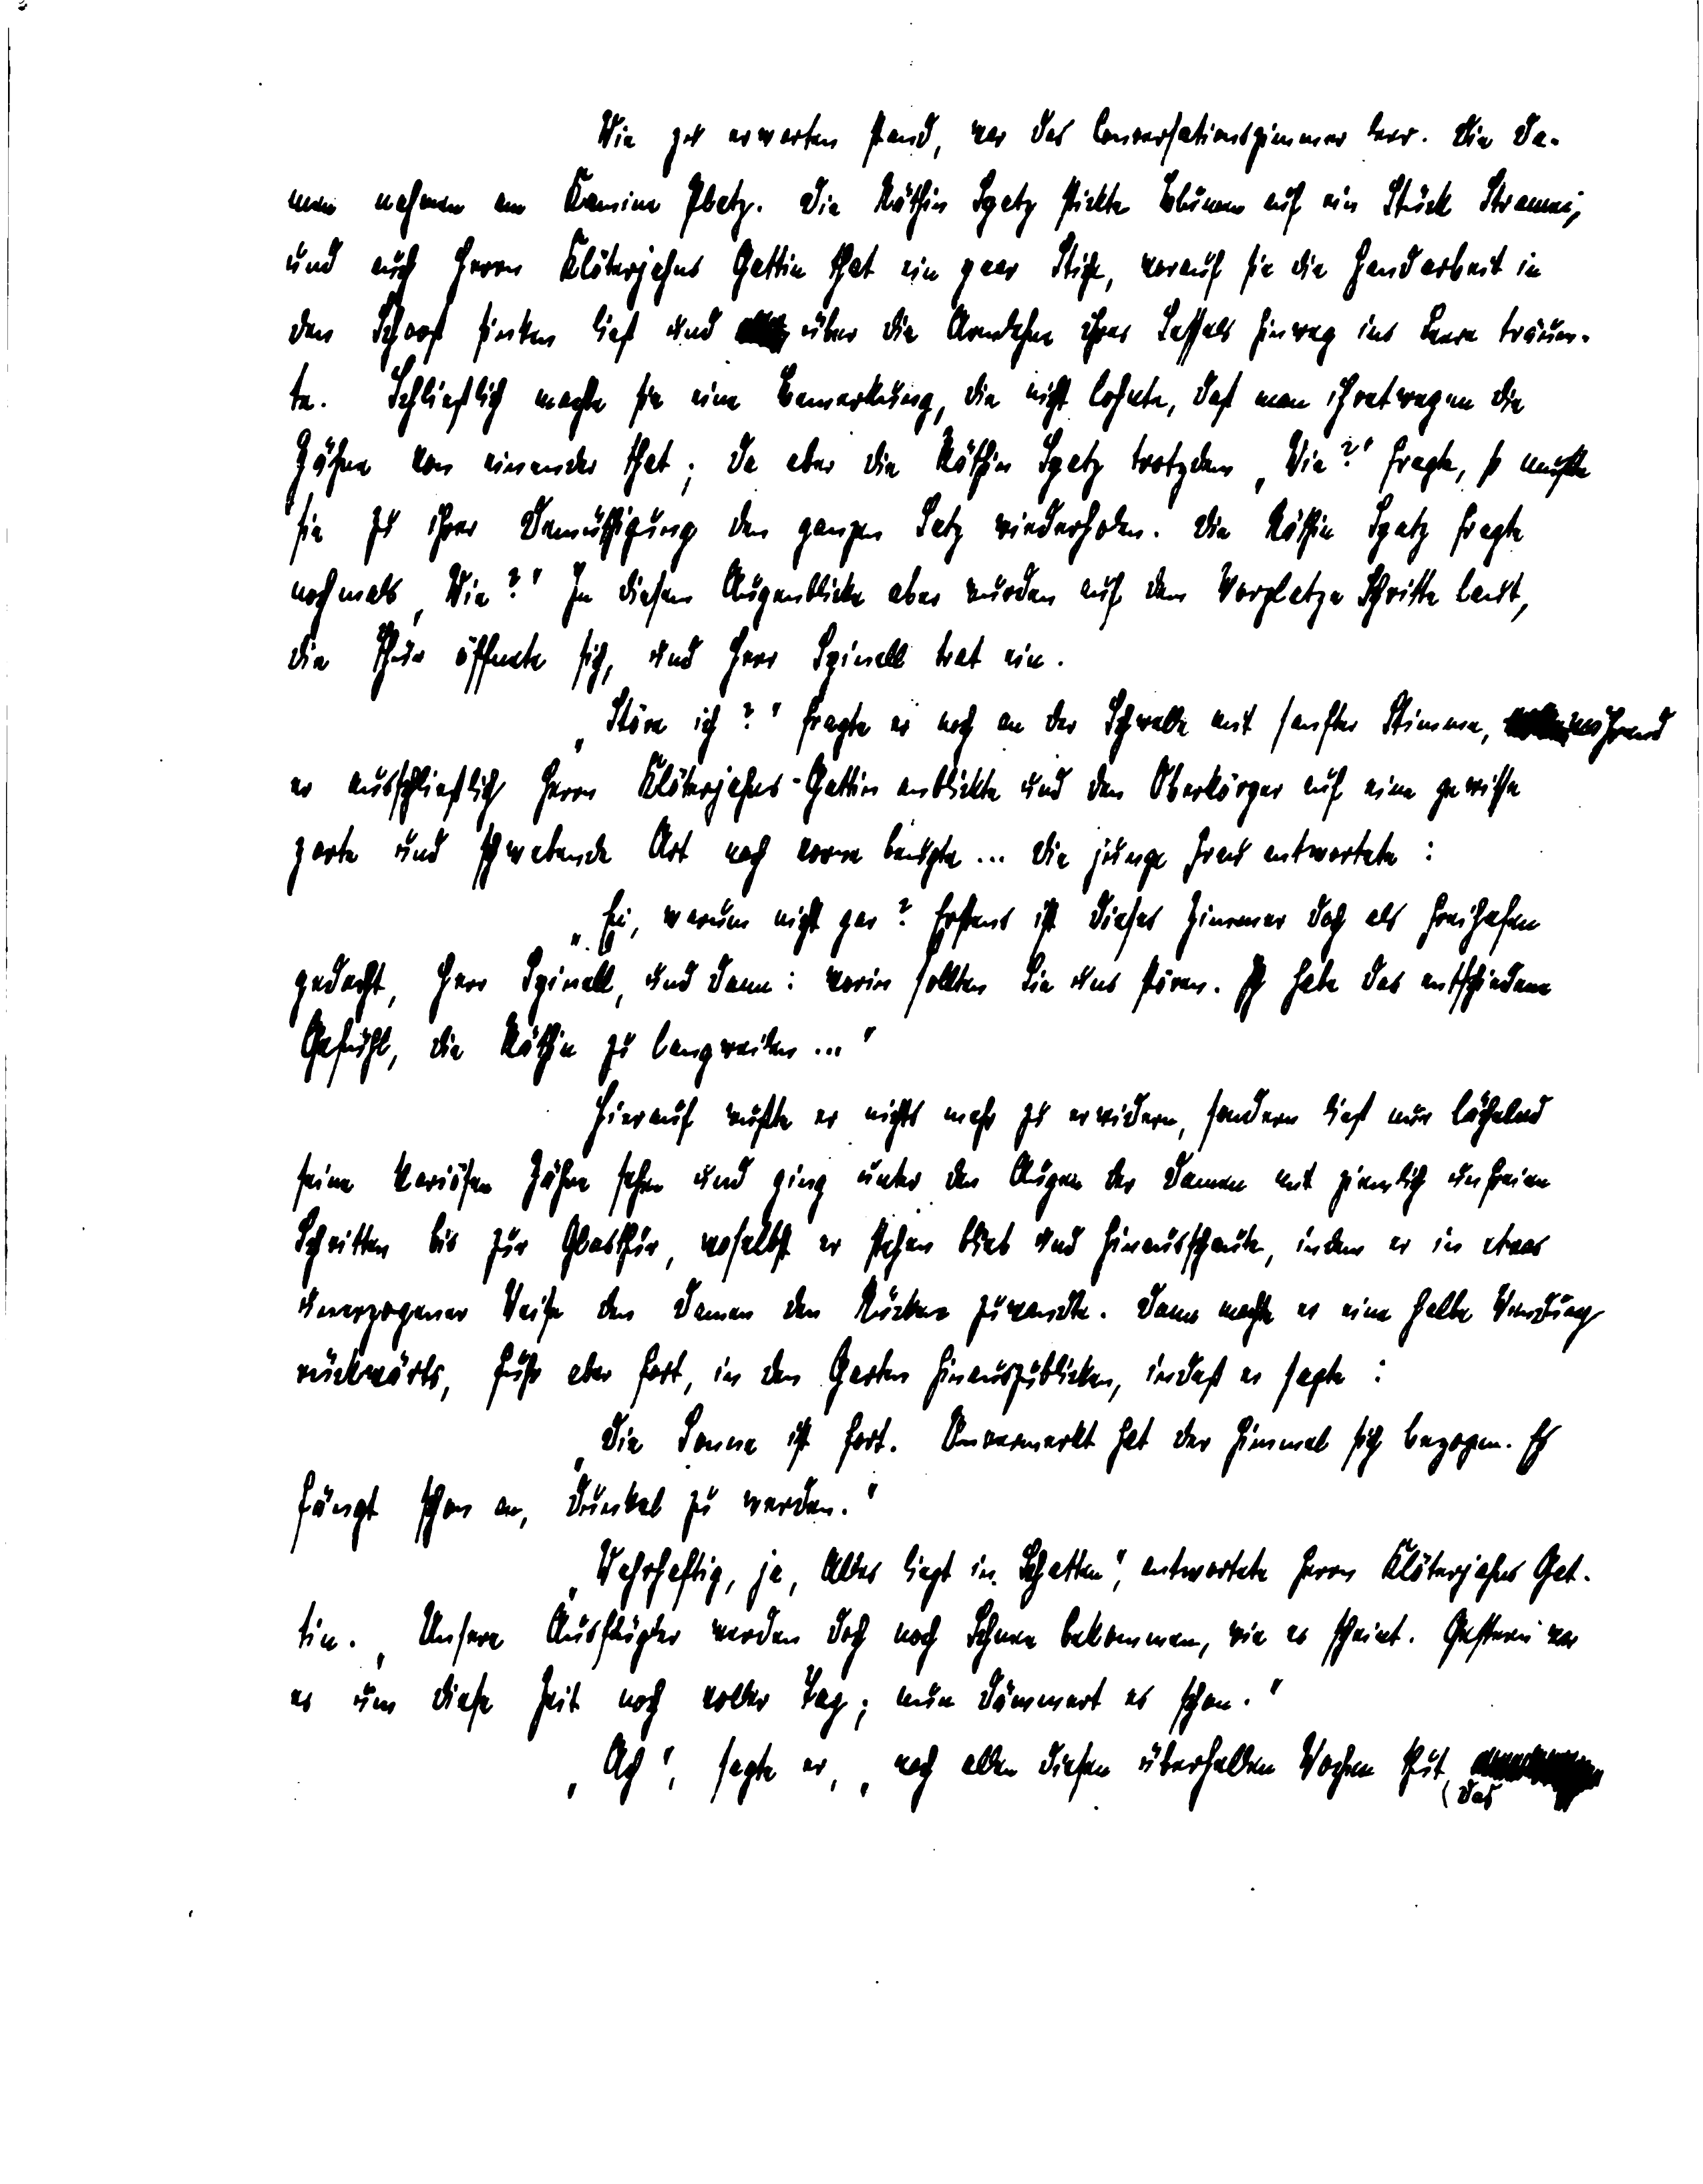 Wie zu erwarten stand, war das Conversationszimmer leer. Die Da-
men nahmen am Kamine Platz. Die Räthin Spatz stickte Blumen auf ein Stück Stramin,
und auch Herrn Klöterjahns Gattin that ein paar Stiche, worauf sie die Handarbeit in
den Schooß sinken ließ und über die Armlehne ihres Sessels hinweg ins Leere träum-
te. Schließlich machte sie eine Bemerkung, die nicht lohnte, daß man ihretwegen die
Zähne von einander that; da aber die Räthin Spatz trotzdem „Wie?" fragte, so mußte
sie zu ihrer Demüthigung den ganzen Satz wiederholen. Die Räthin Spatz fragte
nochmals „Wie?" In diesem Augenblicke aber wurden auf dem Vorplatze Schritte laut,
die Thür öffnete sich, und Herr Spinell trat ein.
„Störe ich?" fragte er noch an der Schwelle mit sanfter Stimme, während
er ausschließlich Herrn Klöterjahns-Gattin anblickte und den Oberkörper auf eine gewisse
zarte und schwebende Art nach vorne beugte... Die junge Frau antwortete:
„Ei, warum nicht gar? Erstens ist dieses Zimmer doch als Freihafen
gedacht, Herr Spinell, und dann: worin sollten Sie uns stören. Ich habe das entschiedene
Gefühl, die Räthin zu langweilen..."
Hierauf wußte er nichts mehr zu erwidern, sondern ließ nur lächelnd
seine kariösen Zähne sehen und ging unter den Augen der Damen mit ziemlich unfreien
Schritten bis zur Glasthür, woselbst er stehen blieb und hinausschaute, indem er in etwas
unerzogener Weise den Damen den Rücken zuwandte. Dann machte er eine halbe Wendung
rückwärts, fuhr aber fort, in den Garten hinauszublicken, indeß er sagte:
„Die Sonne ist fort. Unvermerkt hat der Himmel sich bezogen. Es
fängt schon an, dunkel zu werden."
„Wahrhaftig, ja, Alles liegt in Schatten", antwortete Herrn Klöterjahns Gat-
tin. „Unsere Ausflügler werden doch noch Schnee bekommen, wie es scheint. Gestern war
es um diese Zeit noch voller Tag; nun dämmert es schon."
„Ach", sagte er, „nach allen diesen überhellen Wochen thut das